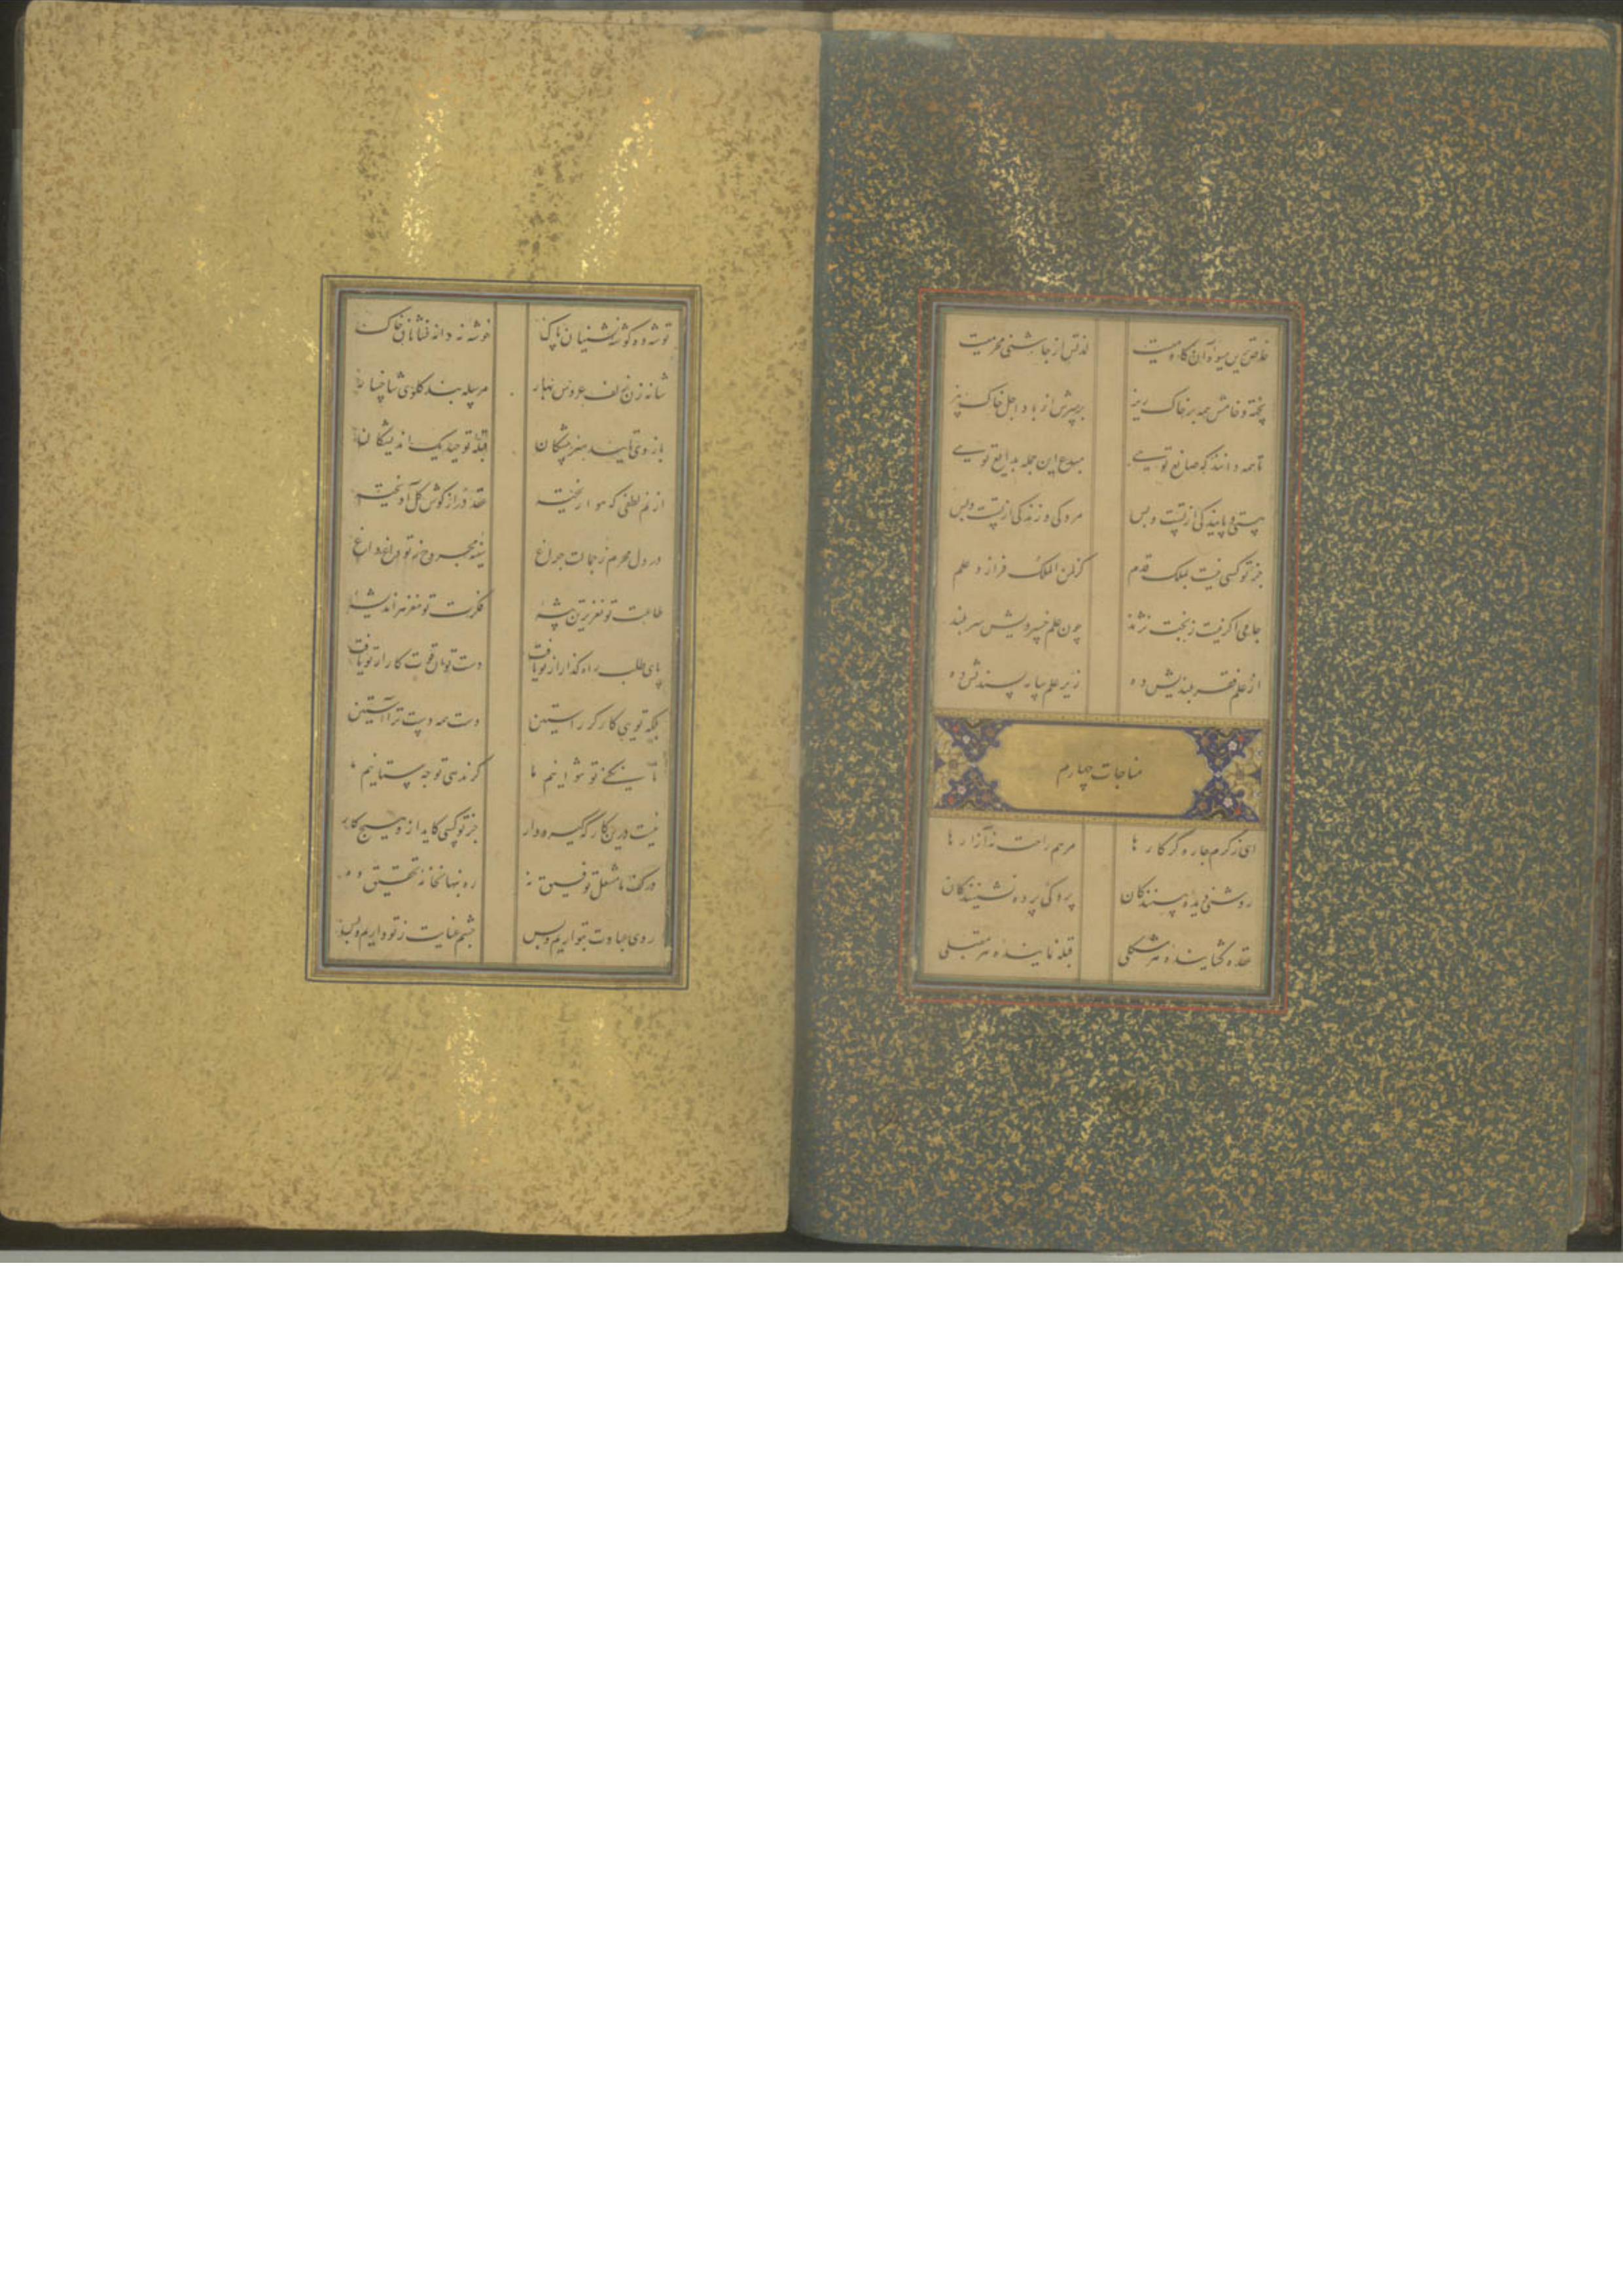 خاصترین میوه آن کادمیست لذتش از چاشنی محرمیست
پخته و خامش همه بر خاک ریز بر سرش از باد اجل خاک بیز
تا همه دانند که صانع تویی مبدع این جمله بدایع تویی
هستی و پایندگی از تست و بس مردگی و زندگی از تست و بس
جز تو کسی نیست بملک قدم کز لمن الملک فرازد علم
جامی اگر نیست ز بخت نژند چون علم خسرویش سربلند
از علم فقر بلندیش ده زیر علم سایه پسندیش ده
مناجات چهارم
ای ز کرم چاره گر کارها مرهم راحت نه آزارها
روشنی دیده بینندگان پردگی پرده نشینندگان
عقده گشاینده هر مشکلی قبله نماینده هر مقبلی
توشه ده گوشه نشینان پاک خوشه نه دانه فشانان خاک
شانه زن زلف عروس بهار مرسله بند گلوی شاخسار
بازوی تایید هنرپیشگان قبله توحید یک اندیشگان
از نم لطفی که هوا ریخته عقد در از گوش گل آویخته
در دل محرم ز جمالت چراغ سینه مجروح ز تو داغ داغ
طاعت تو نغزترین پیشه فکرت تو مغز هر اندیشه
پای طلب راه گذار از تو یافت دست توان قوت کار از تو یافت
بلکه تویی کارگر راستین دست همه دست ترا آستین
تا نکنی تو نتوانیم ما گر ندهی تو چه ستانیم ما
نیست درین کارگه گیرودار جز تو کسی کاید ازو هیچ کار
در کف ما مشعل توفیق نه ره بنهانخانه تحقیق ده
روی عبادت بتو آریم و بس چشم عنایت ز تو داریم و بس